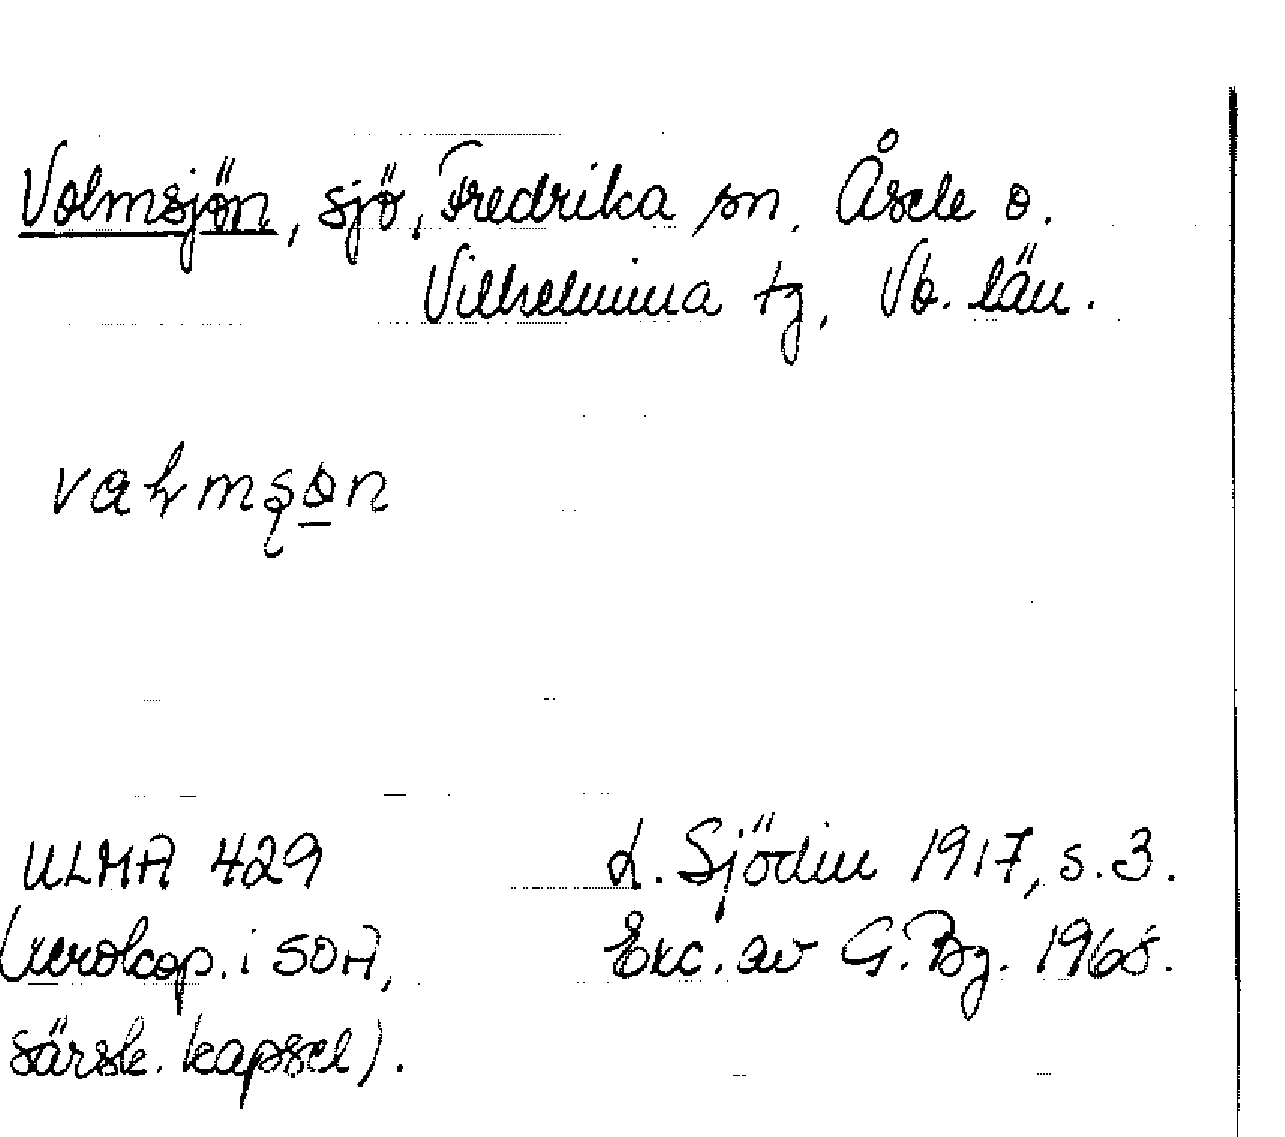 Volmsjön, sjö, Fredrika sn. Åsele o.
Vilhelmina tg, Vb. län.
ULMA 429
(xerokop. i SOA,
särsk. kapsel).
L. Sjödin 1917, s. 3.
Exc. av G. Bg. 1965.